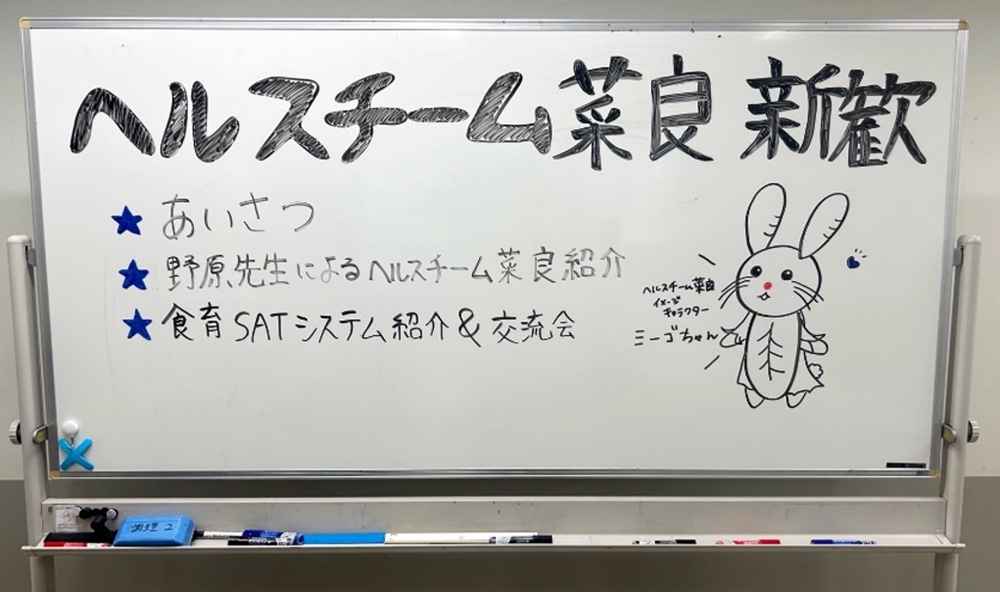 ヘルスチーム菜良 新歓
★あいさつ
★野原先生によるヘルスチーム菜良紹介
★食育SATシステム紹介&交流会
ヘルスチーム菜良
イメージ
キャラクター
ミーゴちゃん
調理2